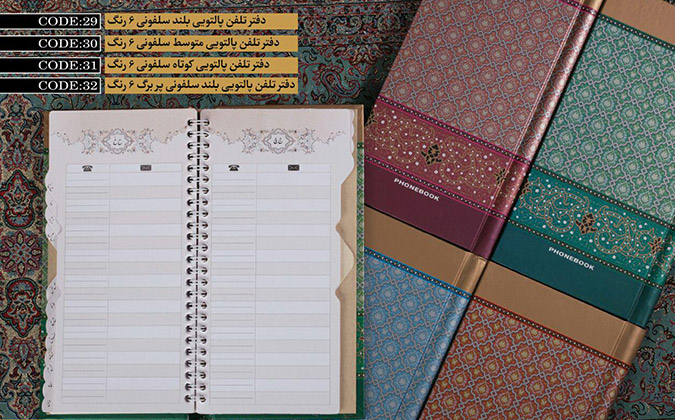 CODE:29 دفتر تلفن پالتویی بلند سلفونی ۶ رنگ
CODE:30 دفتر تلفن پالتویی متوسط سلفونی ۶ رنگ
CODE:31 دفتر تلفن پالتویی کوتاه سلفونی ۶ رنگ
CODE:32 دفتر تلفن پالتویی بلند سلفونی پر برگ ۶ رنگ
PHONEBOOK
PHONEBOOK